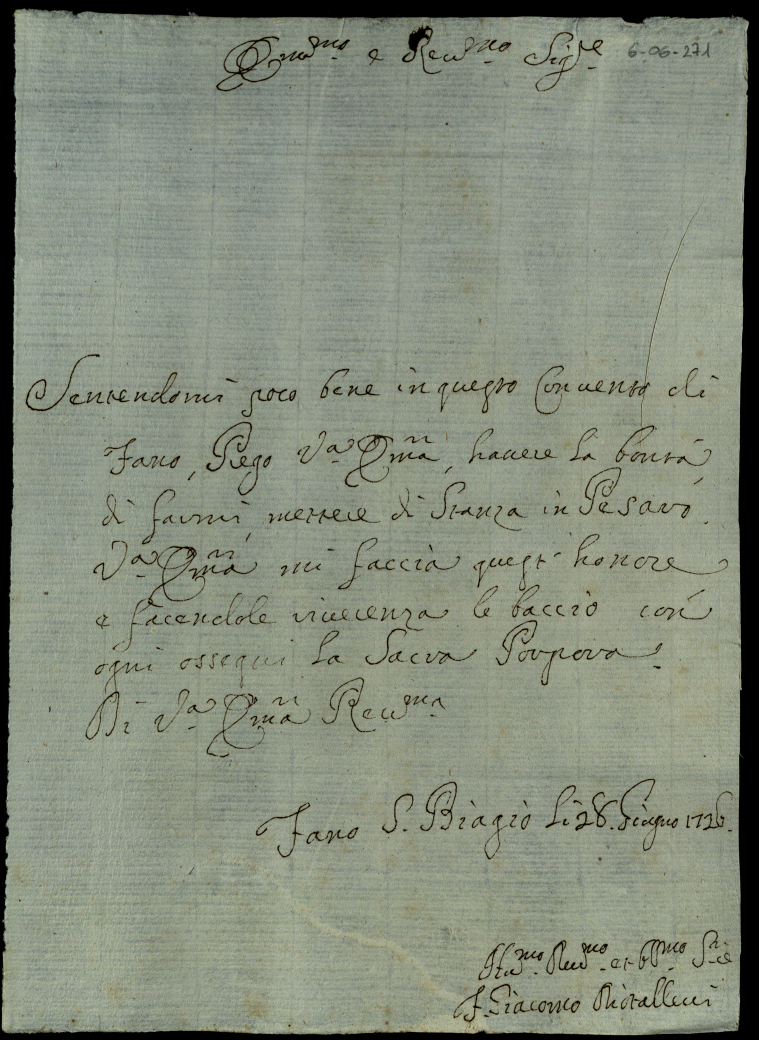 Em.mo e Reu.mo Sig.re 6-06-271
Sentendomi poco bene in questo Conuento di
Fano, Prego V.a Em.a, hauere la bontà
di farmi mettere di Stanza in Pesaro.
V.a Em.a mi faccia quest' honore
e facendole riuerenza le baccio con
ogni ossequi la Sacra Porpora.
Di V.a Em.a Reu.ma
Fano S. Biagio li 28. Giugno 1726.
Hu.mo Deu.mo et Ob.mo
F. Giacomo